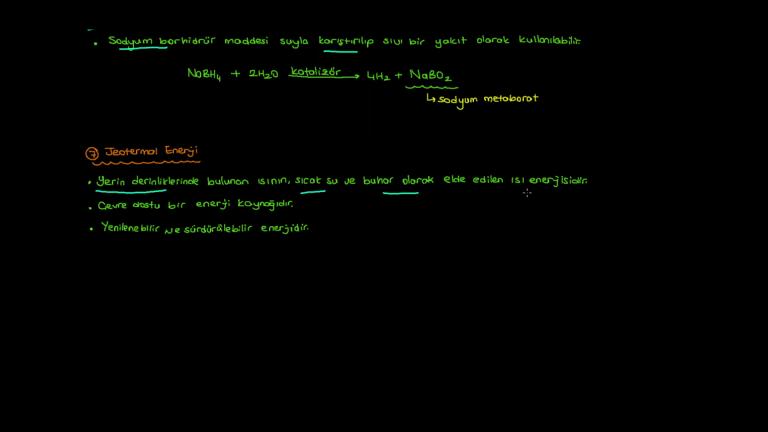 • Sodyum borhidrür maddesi suyla karıştırılıp sıvı bir yakıt olarak kullanılabilir.
NaBH₄ + 2H₂O katalizör → 4H₂ + NaBO₂
↳ sodyum metaborat
⑦ Jeotermal Enerji
• Yerin derinliklerinde bulunan ısının, sıcak su ve buhar olarak elde edilen ısı enerjisidir.
• Çevre dostu bir enerji kaynağıdır.
• Yenilenebilir ve sürdürülebilir enerjidir.